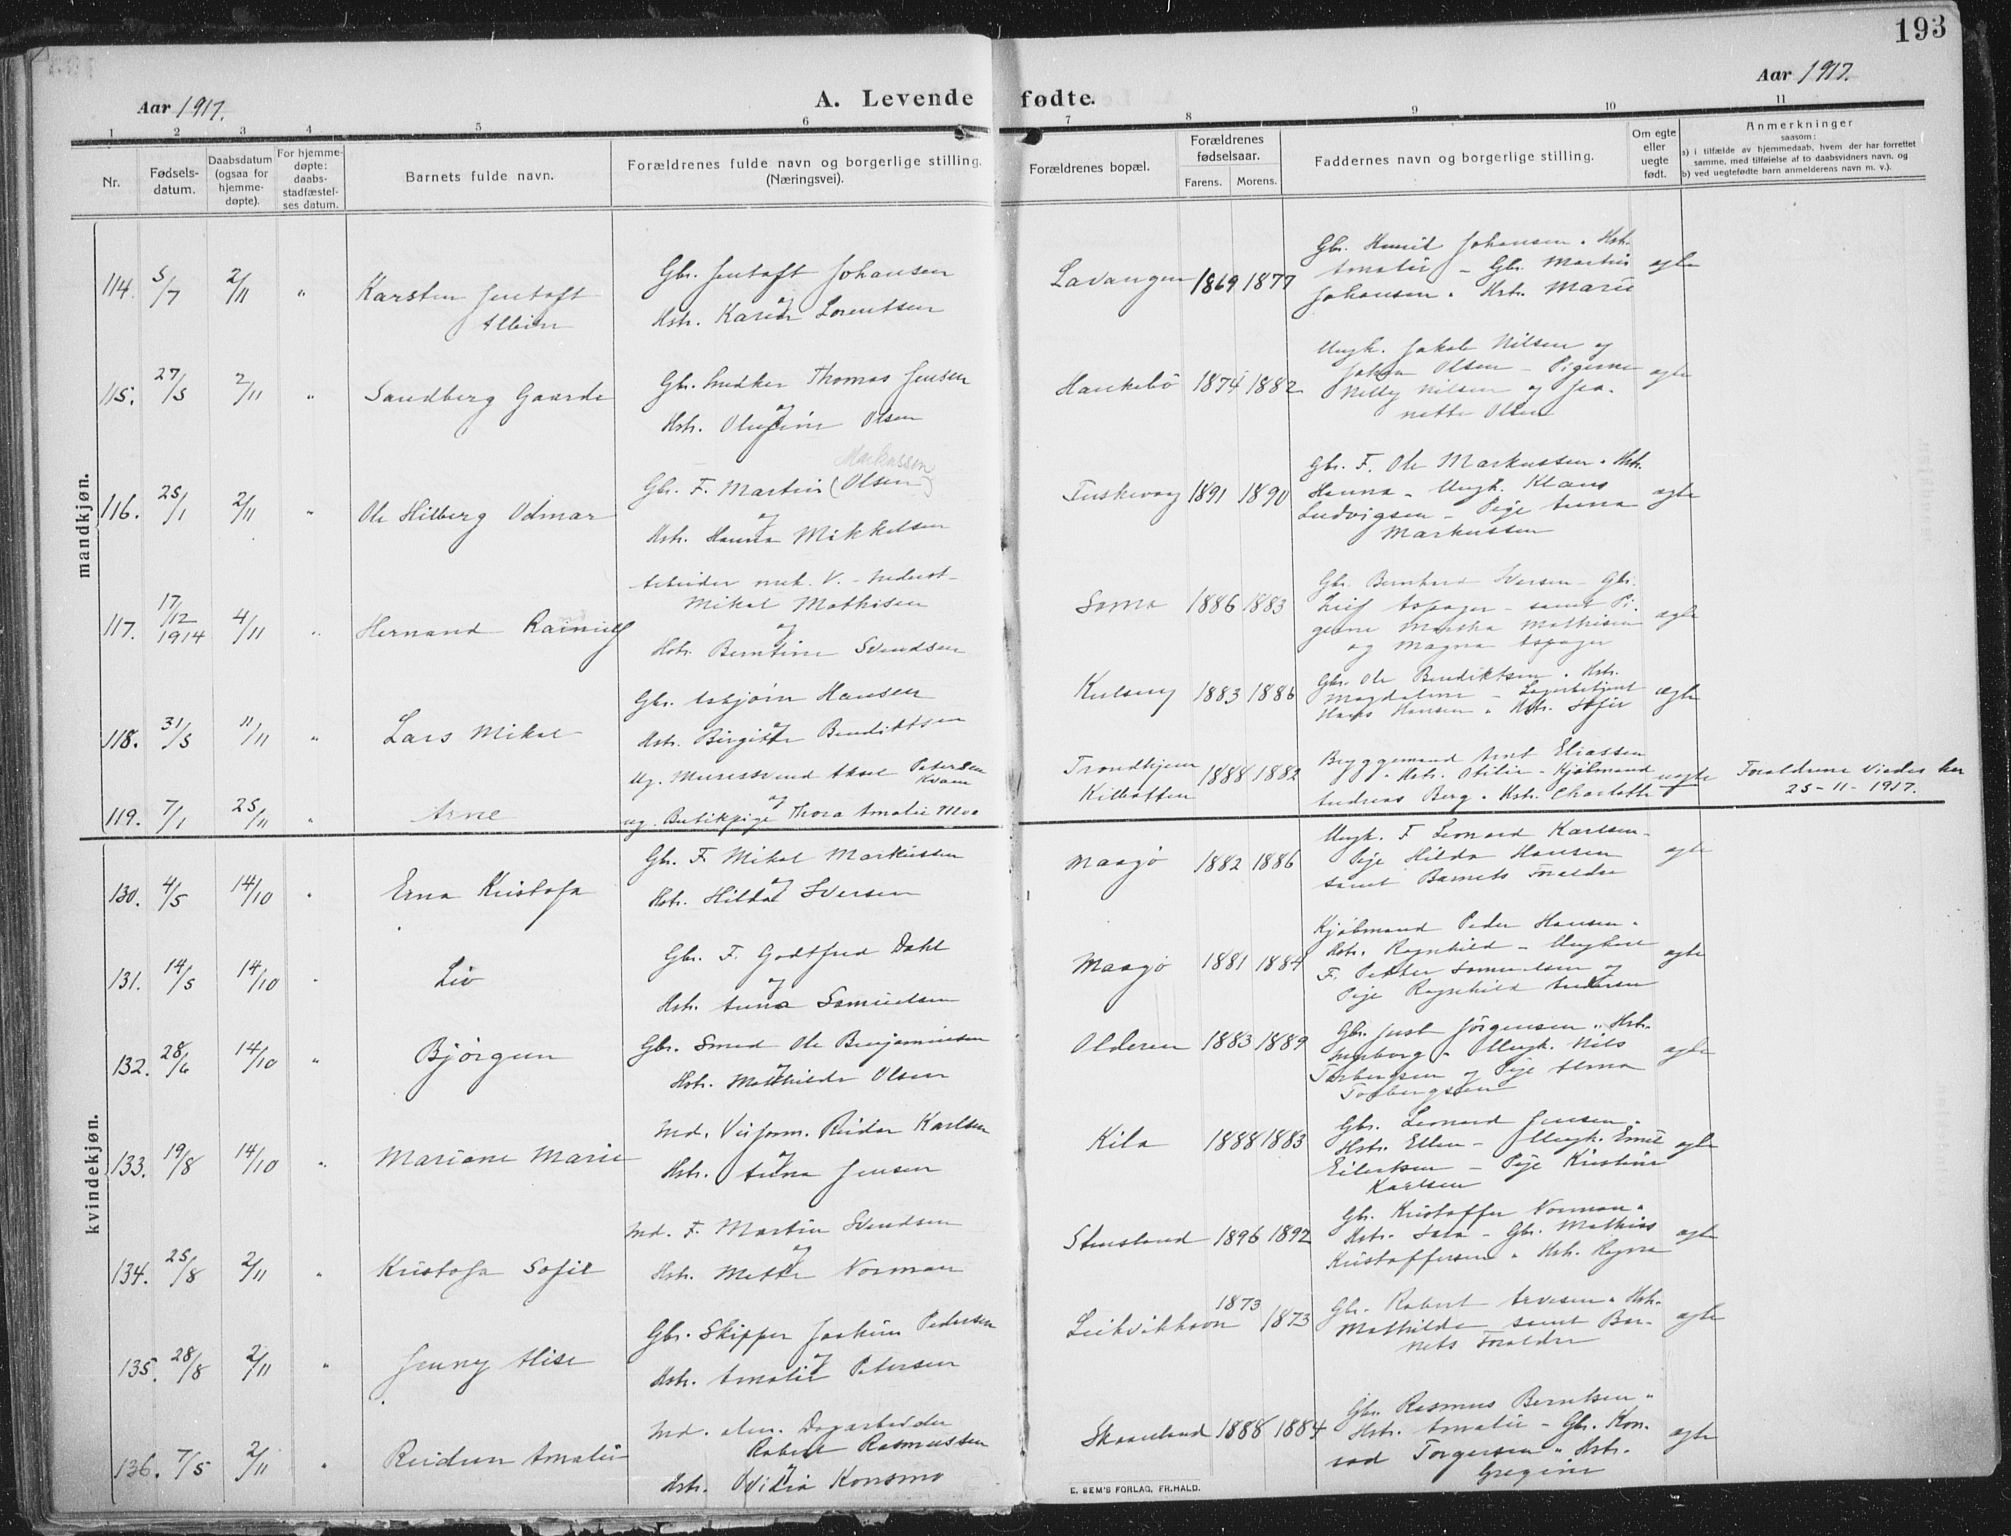 193
Aar 1917.
A. Levende fødte.
Aar 1917.
1 2 3 4 5 6 7 8 9 10 11
Nr.
Fødsels-
datum.
Daabsdatum
(ogsaa for
hjemme-
døpte).
For hjemme-
døpte:
daabs-
stadfæstel-
ses datum.
Barnets fulde navn.
Forældrenes fulde navn og borgerlige stilling.
(Næringsvei).
Forældrenes bopæl.
Forældrenes
fødselsaar.
Farens. Morens.
Faddernes navn og borgerlige stilling.
Om egte
eller
uegte
født.
Anmerkninger
saasom:
a) i tilfælde av hjemmedaab, hvem der har forrettet
samme, med tilføielse af to daabsvidners navn, og
b) ved uegtefødte barn anmelderens navn m. v.).
mandkjøn.
114. 5/7 2/11 "
Karsten Jentoft
Albin
Gbr. Jentoft Johansen
og
Hstr. Lorentsen
Lavangen 1869 1877
Gbr. Johansen " Hstr.
Amalie - Gbr. Martin
Johansen " Hstr. Marie
egte
115. 27/5 2/11 "
Sandberg Gaarde
Gbr. Snedker Thomas Jensen
og
Hstr. Olufine Olsen
Haukebø 1874 1882
Ungk. Jakob Nilsen og
Johan Olsen - Pigerne
Nelly Nilsen og Jea-
nette Olsen
egte
116. 25/1 2/11 "
Ole Hilberg Odmar
Markussen
Gbr. F. Martin (Olsen)
og
Hstr. Hanna Mikkelsen
Tuskevaag 1891 1890
Gbr. F. Ole Markussen " Hstr.
Hanna - Ungk. Klaus
Ludvigsen - Pige Anna
Markussen
egte
117. 17/12 1914 4/11 "
Hernand
Arbeider mek. V.
Mikal Mathisen
og
Hstr. Berntine Svendsen
Sama 1886 1883
Gbr. Bernhard Iversen - Gbr.
Leif Aspager - samt Pi-
gerne Martha Mathisen
og Magna Aspager
egte
118. 31/5 11/11 "
Lars Mikal
Gbr. Asbjørn Hansen
og
Hstr. Birgitte Bendiktsen
1883 1886
Gbr. Ole Bendiktsen " Hstr.
Magdalene - Lagerbetjent
Hans Hansen " Hstr. Sofie
egte
119. 7/1 25/11 "
Arne
Ug. Murersvend Aksel Petersen
Kvam
og
ug. Butikpige Thora Amalie Moa
Trondhjem
Kilbotten
1888 1882
Bryggemand Arnt Eliassen
" Hstr. Otilie - Kjøbmand
Andreas Berg " Hstr. Charlotte
uegte
Foraldrene viedes her
25-11-1917.
kvindekjøn.
130. 4/5 14/10 "
Erna Kristofa
Gbr. F. Mikal Markussen
og
Hstr. Hilda Iversen
Maagø 1882 1886
Ungk. F Leonard Karlsen -
Pige Hilda Hansen
samt Barnets Foraldre
egte
131. 14/5 14/10 "
Liv
Gbr. F. Godtfred Dahl
og
Hstr. Anna Samuelsen
Maagø 1881 1884
Kjøbmand Peder Hansen "
Hstr. Ragnhild - Ungkar
F. Petter Samuelsen og
Pige Ragnhild Andersen
egte
132. 28/6 14/10 "
Bjørgun
Gbr. Smed Ole Benjaminsen
og
Hstr. Mathilde Olsen
Olderen 1883 1889
Gbr. Just Jørgensen " Hstr.
Ingborg " Ungk. Nils
Torbergsen og Pige Anna
Torbergsen
egte
133. 19/8 14/10 "
Mariane Marie
Md. Veiform. Reidar Karlsen
og
Hstr. Anna Jensen
Kila 1888 1883
Gbr. Leonard Jensen "
Hstr. Ellen - Ungk. Emil
Eilertsen - Pige Kristine
Karlsen
egte
134. 25/8 2/11 "
Kristofa Sofie
Md. F. Martin Svendsen
og
Hstr. Mette Norman
Stensland 1896 1892
Gbr. Kristoffer Norman "
Hstr. - Gbr. Mathias
Kristoffersen " Hstr. Ragna
egte
135. 28/8 2/11 "
Jenny Alise
Gbr. Skipper Joakim Pedersen
og
Hstr. Amalie Petersen
Leikvikhavn 1873 1873
Gbr. Robert Arvesen " Hstr.
Mathilde samt Bar-
nets Foraldre
egte
136. 7/5 2/11 "
Reidun Amalie
Md. alm. Dagarbeider
Robert Rasmussen
og
Hstr. Konsmo
Skaaeland 1888 1884
Gbr. Rasmus Berntsen "
Hstr. Amalie - Gbr. Kon-
rad Torgersen " Hstr.
Gregine
egte
E. SEM'S FORLAG, FR.HALD.